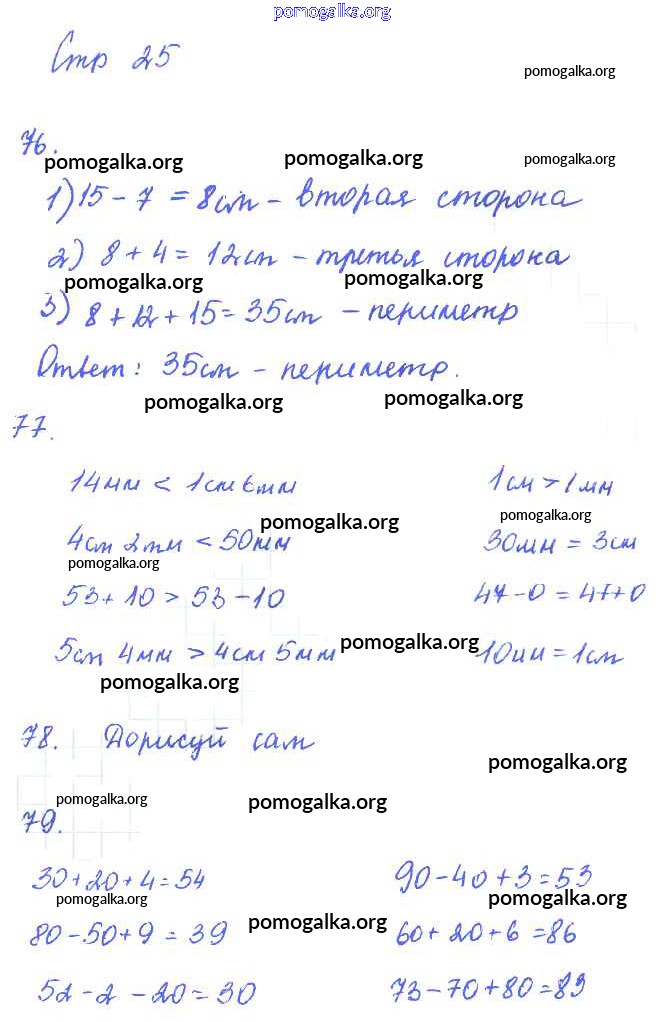 pomogalka.org
Стр 25
pomogalka.org
76.
pomogalka.org pomogalka.org pomogalka.org
1) 15 - 7 = 8см - вторая сторона
2) 8 + 4 = 12см - третья сторона
pomogalka.org pomogalka.org
3) 8 + 12 + 15 = 35см - периметр
Ответ: 35см - периметр.
pomogalka.org pomogalka.org
77.
14мм < 1см 6мм 1см > 1мм
pomogalka.org pomogalka.org
4см 2мм < 50мм 30мм = 3см
pomogalka.org
53 + 10 > 53 - 10 47 - 0 = 47 + 0
pomogalka.org
5см 4мм > 4см 5мм 10мм = 1см
pomogalka.org
78. Дорисуй сам
pomogalka.org
pomogalka.org pomogalka.org
79.
30 + 20 + 4 = 54 90 - 40 + 3 = 53
pomogalka.org pomogalka.org
80 - 50 + 9 = 39 60 + 20 + 6 = 86
pomogalka.org
52 - 2 - 20 = 30 73 - 70 + 80 = 83